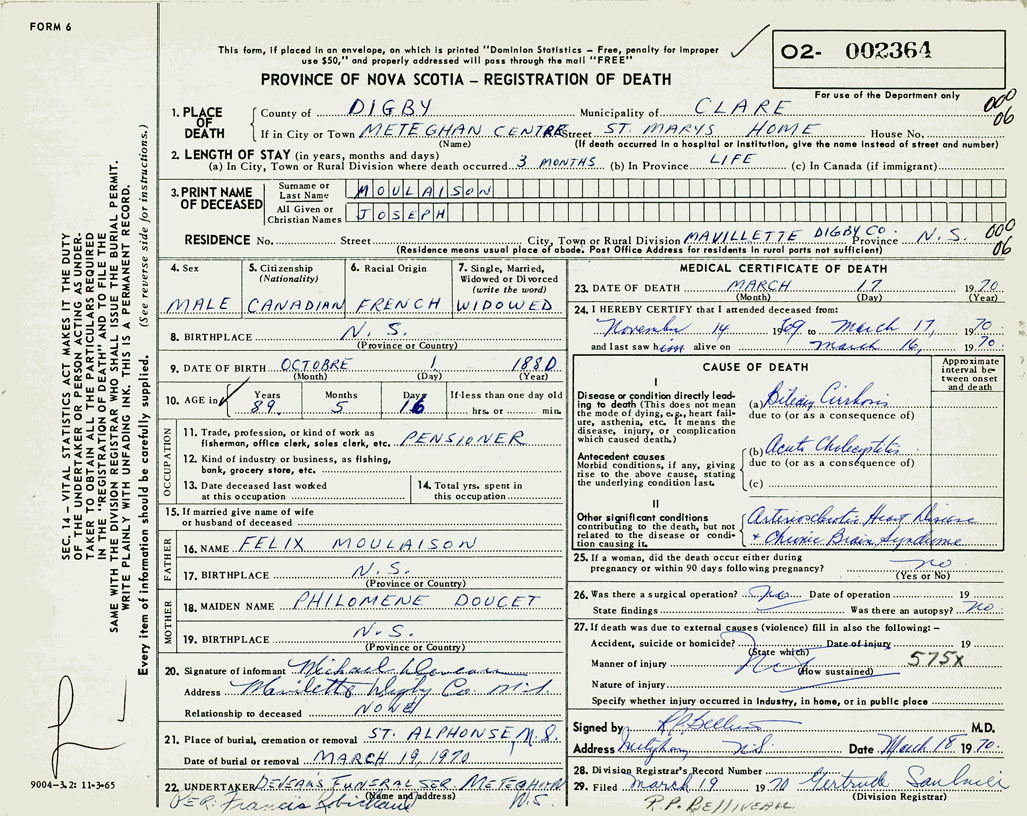 FORM 6
This form, if placed in an envelope, on which is printed "Dominion Statistics – Free, penalty for improper
use $50," and properly addressed will pass through the mail "FREE"
PROVINCE OF NOVA SCOTIA – REGISTRATION OF DEATH
O2- 002364
For use of the Department only
000
06
1. PLACE OF DEATH
County of DIGBY Municipality of CLARE
If in City or Town METEGHAN CENTRE Street ST. MARYS HOME House No.
(Name) (If death occurred in a hospital or institution, give the name instead of street and number)
2. LENGTH OF STAY (in years, months and days)
(a) In City, Town or Rural Division where death occurred 3 MONTHS (b) In Province LIFE (c) In Canada (if immigrant)
3. PRINT NAME OF DECEASED
Surname or Last Name MOULAISON
All Given or Christian Names JOSEPH
RESIDENCE No. Street City, Town or Rural Division MAVILLETTE DIGBY CO. Province N.S.
(Residence means usual place of abode. Post Office Address for residents in rural parts not sufficient)
000
06
4. Sex MALE
5. Citizenship (Nationality) CANADIAN
6. Racial Origin FRENCH
7. Single, Married, Widowed or Divorced (write the word) WIDOWED
8. BIRTHPLACE N.S.
(Province or Country)
9. DATE OF BIRTH OCTOBRE 1 1880
(Month) (Day) (Year)
10. AGE in Years Months Days If less than one day old
89. 5 16 hrs. or min.
OCCUPATION
11. Trade, profession, or kind of work as
fisherman, office clerk, sales clerk, etc. PENSIONER
12. Kind of industry or business, as fishing,
bank, grocery store, etc.
13. Date deceased last worked
at this occupation
14. Total yrs. spent in
this occupation
15. If married give name of wife
or husband of deceased
FATHER
16. NAME FELIX MOULAISON
17. BIRTHPLACE N.S.
(Province or Country)
MOTHER
18. MAIDEN NAME PHILOMENE DOUCET
19. BIRTHPLACE N.S.
(Province or Country)
20. Signature of informant Michael Deveau
Address Mavilette Digby Co. N.S
Relationship to deceased NONE
21. Place of burial, cremation or removal ST. ALPHONSE, N.S.
Date of burial or removal MARCH 19, 1970
22. UNDERTAKER DEVEAU'S FUNERAL SER. METEGHAN
(Name and address) N.S.
PER. Francis Robichaud
MEDICAL CERTIFICATE OF DEATH
23. DATE OF DEATH MARCH 17 1970
(Month) (Day) (Year)
24. I HEREBY CERTIFY that I attended deceased from:
November 14 1969 to March 17, 1970
and last saw him alive on March 16, 1970.
CAUSE OF DEATH
Approximate interval between onset and death
I
Disease or condition directly leading to death (This does not mean the mode of dying, e.g., heart failure, asthenia, etc. It means the disease, injury, or complication which caused death.)
(a) Biliary Cirrhosis
due to (or as a consequence of)
Antecedent causes
Morbid conditions, if any, giving rise to the above cause, stating the underlying condition last.
(b) Acute Cholecystitis
due to (or as a consequence of)
(c)
II
Other significant conditions
contributing to the death, but not related to the disease or condition causing it.
Arteriosclerotic Heart Disease
& Chronic Brain Syndrome
25. If a woman, did the death occur either during
pregnancy or within 90 days following pregnancy? no
(Yes or No)
26. Was there a surgical operation? no Date of operation 19
State findings Was there an autopsy? no
27. If death was due to external causes (violence) fill in also the following: –
Accident, suicide or homicide? Date of injury 19
(State which)
Manner of injury 575X
(How sustained)
Nature of injury
Specify whether injury occurred in Industry, in home, or in public place
Signed by R.P. Belliveau M.D.
Address Meteghan, N.S Date March 18 1970.
28. Division Registrar's Record Number
29. Filed March 19 1970 Gertrude Saulnier
(Division Registrar)
R.P. BELLIVEAU
SEC. 14 – VITAL STATISTICS ACT MAKES IT THE DUTY
OF THE UNDERTAKER OR PERSON ACTING AS UNDER-
TAKER TO OBTAIN ALL THE PARTICULARS REQUIRED
IN THE "REGISTRATION OF DEATH" AND TO FILE THE
SAME WITH THE DIVISION REGISTRAR WHO SHALL ISSUE THE BURIAL PERMIT.
WRITE PLAINLY WITH UNFADING INK. THIS IS A PERMANENT RECORD.
Every item of information should be carefully supplied. (See reverse side for instructions.)
9004–3.2: 11-3-65